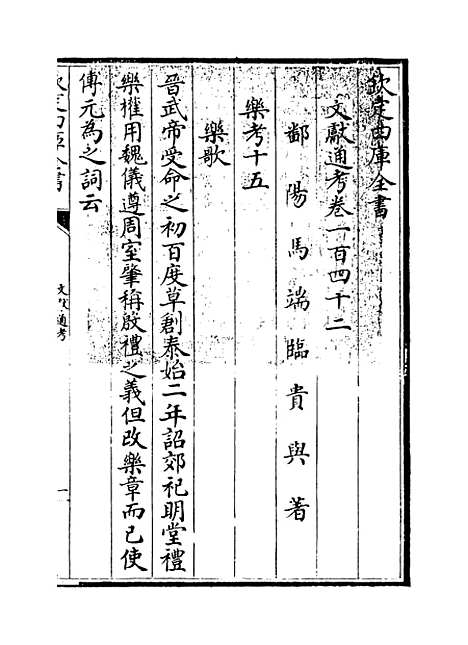 欽定四庫全書
文獻通考卷一百四十二
鄱陽馬端臨貴與著
樂考十五
樂歌
晉武帝受命之初百度草創泰始二年詔郊祀明堂禮
樂權用魏儀遵周室肇稱殷禮之義但改樂章而已使
傅元為之詞云
欽定四庫全書
文獻通考
一